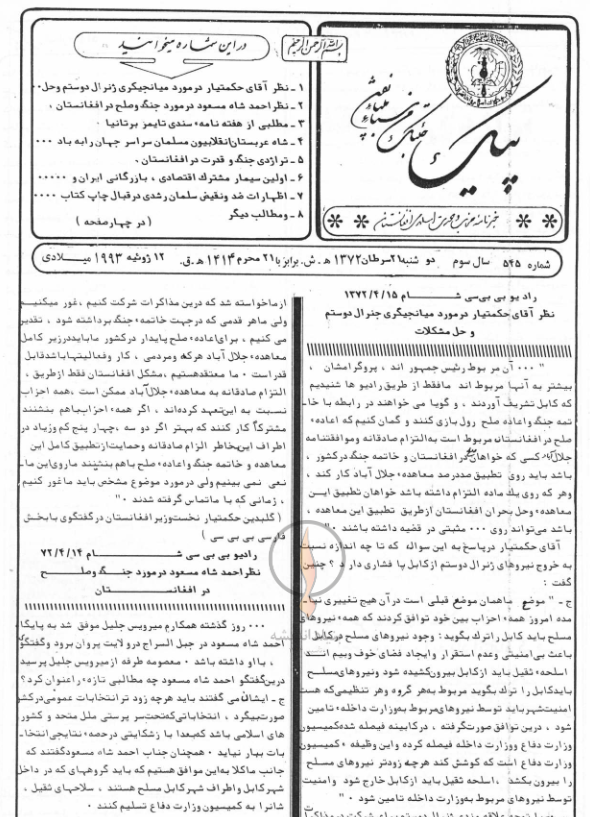 بسم الله الرحمن الرحیم
در این شماره میخوانید
۱ ـ نظر آقای حکمتیار در مورد میانجیگری ژنرال دوستم وحل۰۰
۲ ـ نظر احمد شاه مسعود در مورد جنگ وصلح در افغانستان ،
۳ ـ مطلبی از هفته نامهٔ سندی تایمز برتانیا
۴ ـ شاه عربستان انقلابیون مسلمان سراسر جهان رابه باد ۰۰۰
۵ ـ تراژدی جنگ و قدرت در افغانستان ۰
۶ ـ اولین سیمار مشترک اقتصادی ، بازرگانی ایران و ۰۰۰۰۰
۷ ـ اظهارات ضد ونقیض سلمان رشدی در قبال چاپ کتاب ۰۰۰۰
۸ ـ ومطالب دیگر
( در چهار صفحه )
پیک
شماره ۵۴۵ سال سوم دو شنبه ۲۱ سرطان ۱۳۷۲ ه‍ ـ ش. برابر با ۲۱ محرم ۱۴۱۴ ه‍ ـ ق. ۱۲ ژوئیه ۱۹۹۳ میلادی
رادیو بی بی سی شام ۱۳۷۲/۴/۱۵
نظر آقای حکمتیار در مورد میانجیگری جنرال دوستم
و حل مشکلات
" ۰۰۰ آن مربوط رئیس جمهور اند ، پروگرامشان ،
بیشتر به آنها مربوط اند ما فقط از طریق رادیو ها شنیدیم
که کابل تشریف آوردند ، و گویا می خواهند در رابطه با خا‌ـ
تمه جنگ واعاده صلح رول بازی کنند و گمان کنیم که اعادهٔ
صلح در افغانستان مربوط است به التزام صادقانه وموافقتنامه
جلال آباد کسی که خواهان صلح در افغانستان و خاتمه جنگ در کشور ،
باشد باید روی تطبیق صد در صد معاهدهٔ جلال آباد کار کند ،
وهر که روی یک ماده التزام داشته باشد خواهان تطبیق این
معاهده وحل بحران افغانستان از طریق تطبیق این معاهده ،
باشد می تواند روی ۰۰۰ مثبتی در قضیه داشته باشند ۰"
آقای حکمتیار در پاسخ به این سواله که تا چه اندازه نسبت
به خروج نیروهای ژنرال دوستم از کابل پا فشاری دارد ؟ چنین
گفت :
ج ـ " موضع ما همان موضع قبلی است در آن هیچ تغییری نیا‌ـ
مده امروز همه احزاب بین خود توافق کردند که همه نیروهای
مسلح باید کابل را ترک بگوید : وجود نیروهای مسلح در کابل
باعث بی امنیتی وعدم استقرار وایجاد فضای خوف وبیم اند
اسلحهٔ ثقیل باید از کابل بیرون کشیده شود ونیروهای مسلح
باید کابل را ترک بگوید مربوط به هر گروه وهر تنظیمی که هست
امنیت شهر باید توسط نیروهای مربوط به وزارت داخله تامین
شود ، درین توافق صورت گرفته ، در کابینه فیصله شده کمیسیون
وزارت دفاع و وزارت داخله فیصله کرده و این وظیفه کمیسیون
وزارت دفاع است که کوشش کند هرچه زودتر نیروهای مسلح
را بیرون بکشد ، اسلحه ثقیل باید از کابل خارج شود وامنیت
توسط نیروهای مربوط به وزارت داخله تامین شود ۰ "
از ما خواسته شد که درین مذاکرات شرکت کنیم ، غور میکنیم
ولی ما هر قدمی که در جهت خاتمه جنگ برداشته شود ، تقدیر
می کنیم ، برای اعادهٔ صلح پایدار در کشور ما باید در زیر کامل
معاهدهٔ جلال آباد هر که ومردمی ، کار وفعالیتها باشد قابل
قدر است ۰ ما معتقد هستیم ، مشکل افغانستان فقط از طریق ،
التزام صادقانه به معاهدهٔ جلال آباد ممکن است ، همه احزاب
نسبت به این تعهد کرده اند ، اگر همه احزاب باهم بنشنند
مشترکاً کار کنند که بهتر اگر دو سه ، چهار پنج کم وزیاد در
اطراف این بخاطر الزام صادقانه وحمایت از تطبیق کامل این
معاهده و خاتمه جنگ واعاده صلح با هم بنشنند ماروی این ما‌ـ
نعی نمی بینیم ولی در مورد موضوع مشخص باید ما غور کنیم
، زمانی که با ما تماس گرفته شدند ۰"
( گلبدین حکمتیار نخست وزیر افغانستان در گفتگوی با بخش
فارسی بی بی سی )
رادیو بی بی سی شام ۷۲/۴/۱۴
نظر احمد شاه مسعود در مورد جنگ وصلح
در افغانستان
۰۰۰ روز گذشته همکارم میرویس جلیل موفق شد به پایگاه
احمد شاه مسعود در جبل السراج در ولایت پروان برود وگفتگو
، با او داشته باشد ۰ معصومه طرفه از میرویس جلیل پرسید
در ین گفتگو احمد شاه مسعود چه مطالبی تازه را عنوان کرد؟
ج ـ ایشان می گفتند باید هرچه زود تر انتخابات عمومی در کشور
صورت بگیرد ، انتخاباتی که تحت سر پرستی ملل متحد و کشور
های اسلامی باشد که بعداً با زشکایتی در حصهٔ نتایجی انتخا‌ـ
بات بیار نیاید ۰ همچنان جناب احمد شاه مسعود گفتند که
جانب ما کلا به این موافق هستیم که باید گروههای که در داخل
شهر کابل واطراف شهر کابل مسلح هستند ، سلاحهای ثقیل ،
شانرا به کمیسیون وزارت دفاع تسلیم کنند ۰